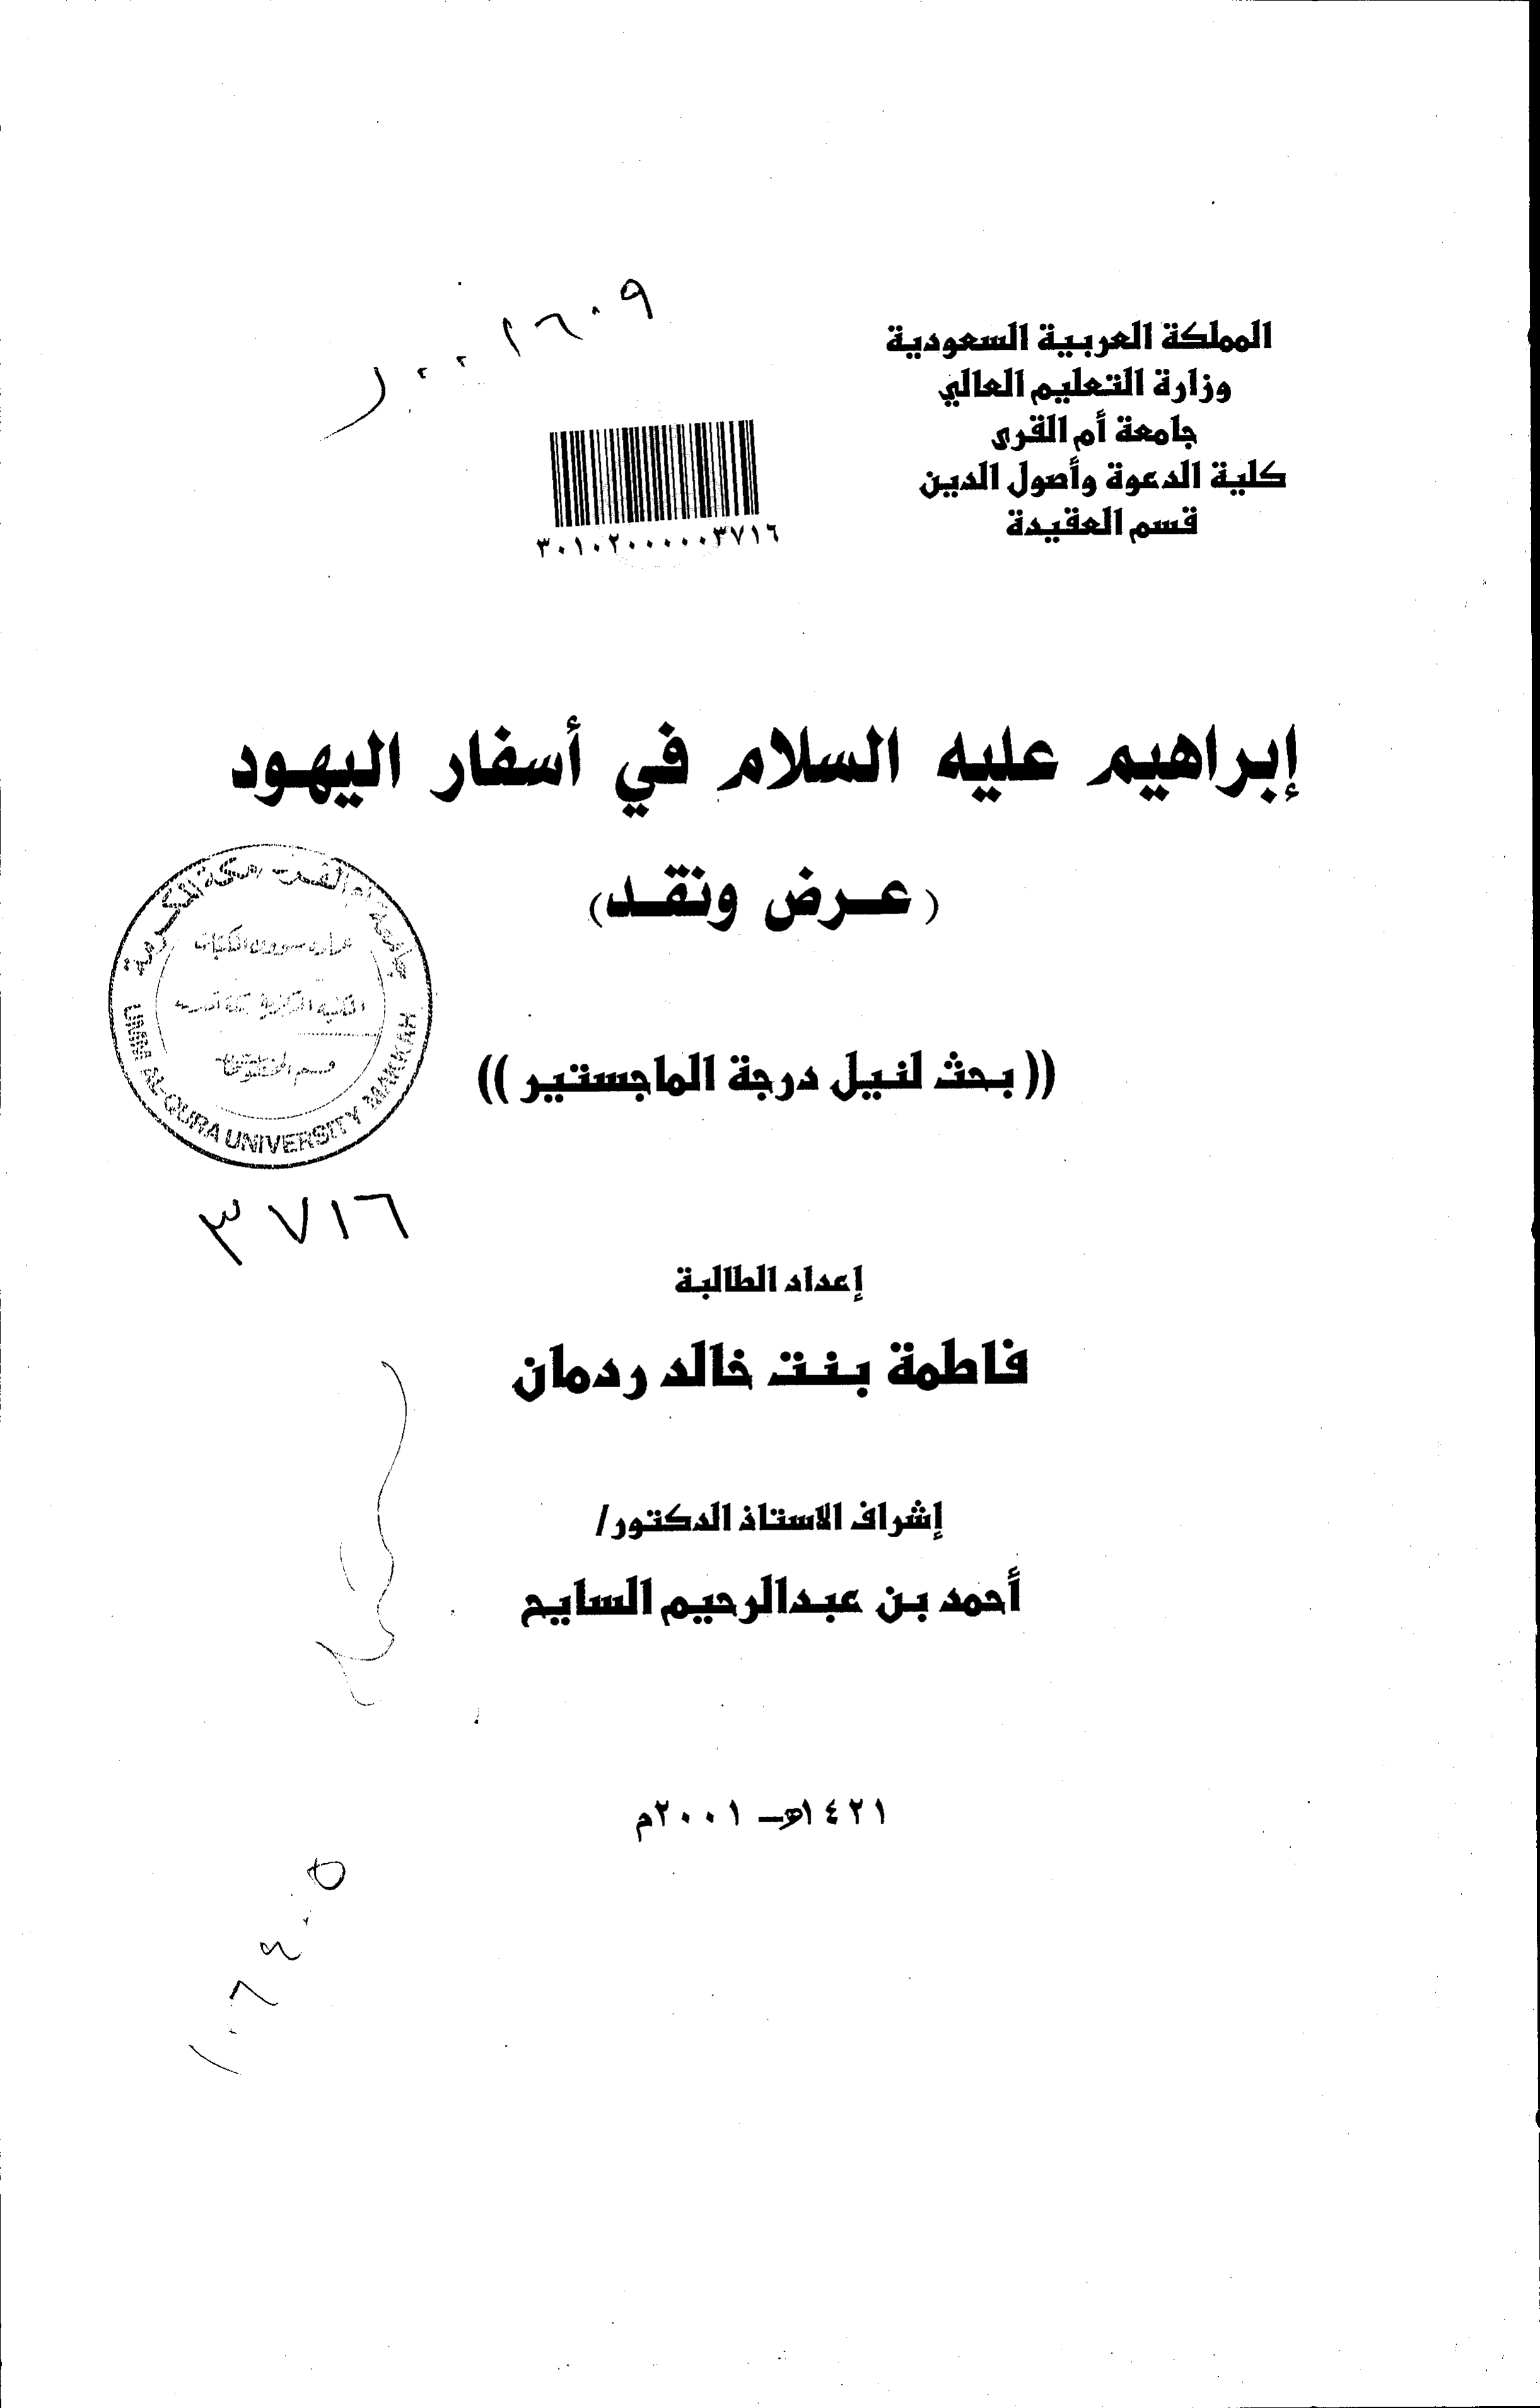 المملكة العربية السعودية
وزارة التعليم العالي
جامعة أم القرى
كلية الدعوة وأصول الدين
قسم العقيدة
٣٠١٠٢٠٠٠٠٠٣٧١٦
إبراهيم عليه السلام في أسفار اليهود
(عرض ونقد)
جامعة أم القرى مكة المكرمة
قسم المخطوطات
UMM AL-QURA UNIVERSITY MAKKAH
((بحث لنيل درجة الماجستير))
٣٧١٦
إعداد الطالبة
فاطمة بنت خالد ردمان
إشراف الاستاذ الدكتور/
أحمد بن عبدالرحيم السايح
١٤٢١هـ - ٢٠٠١م